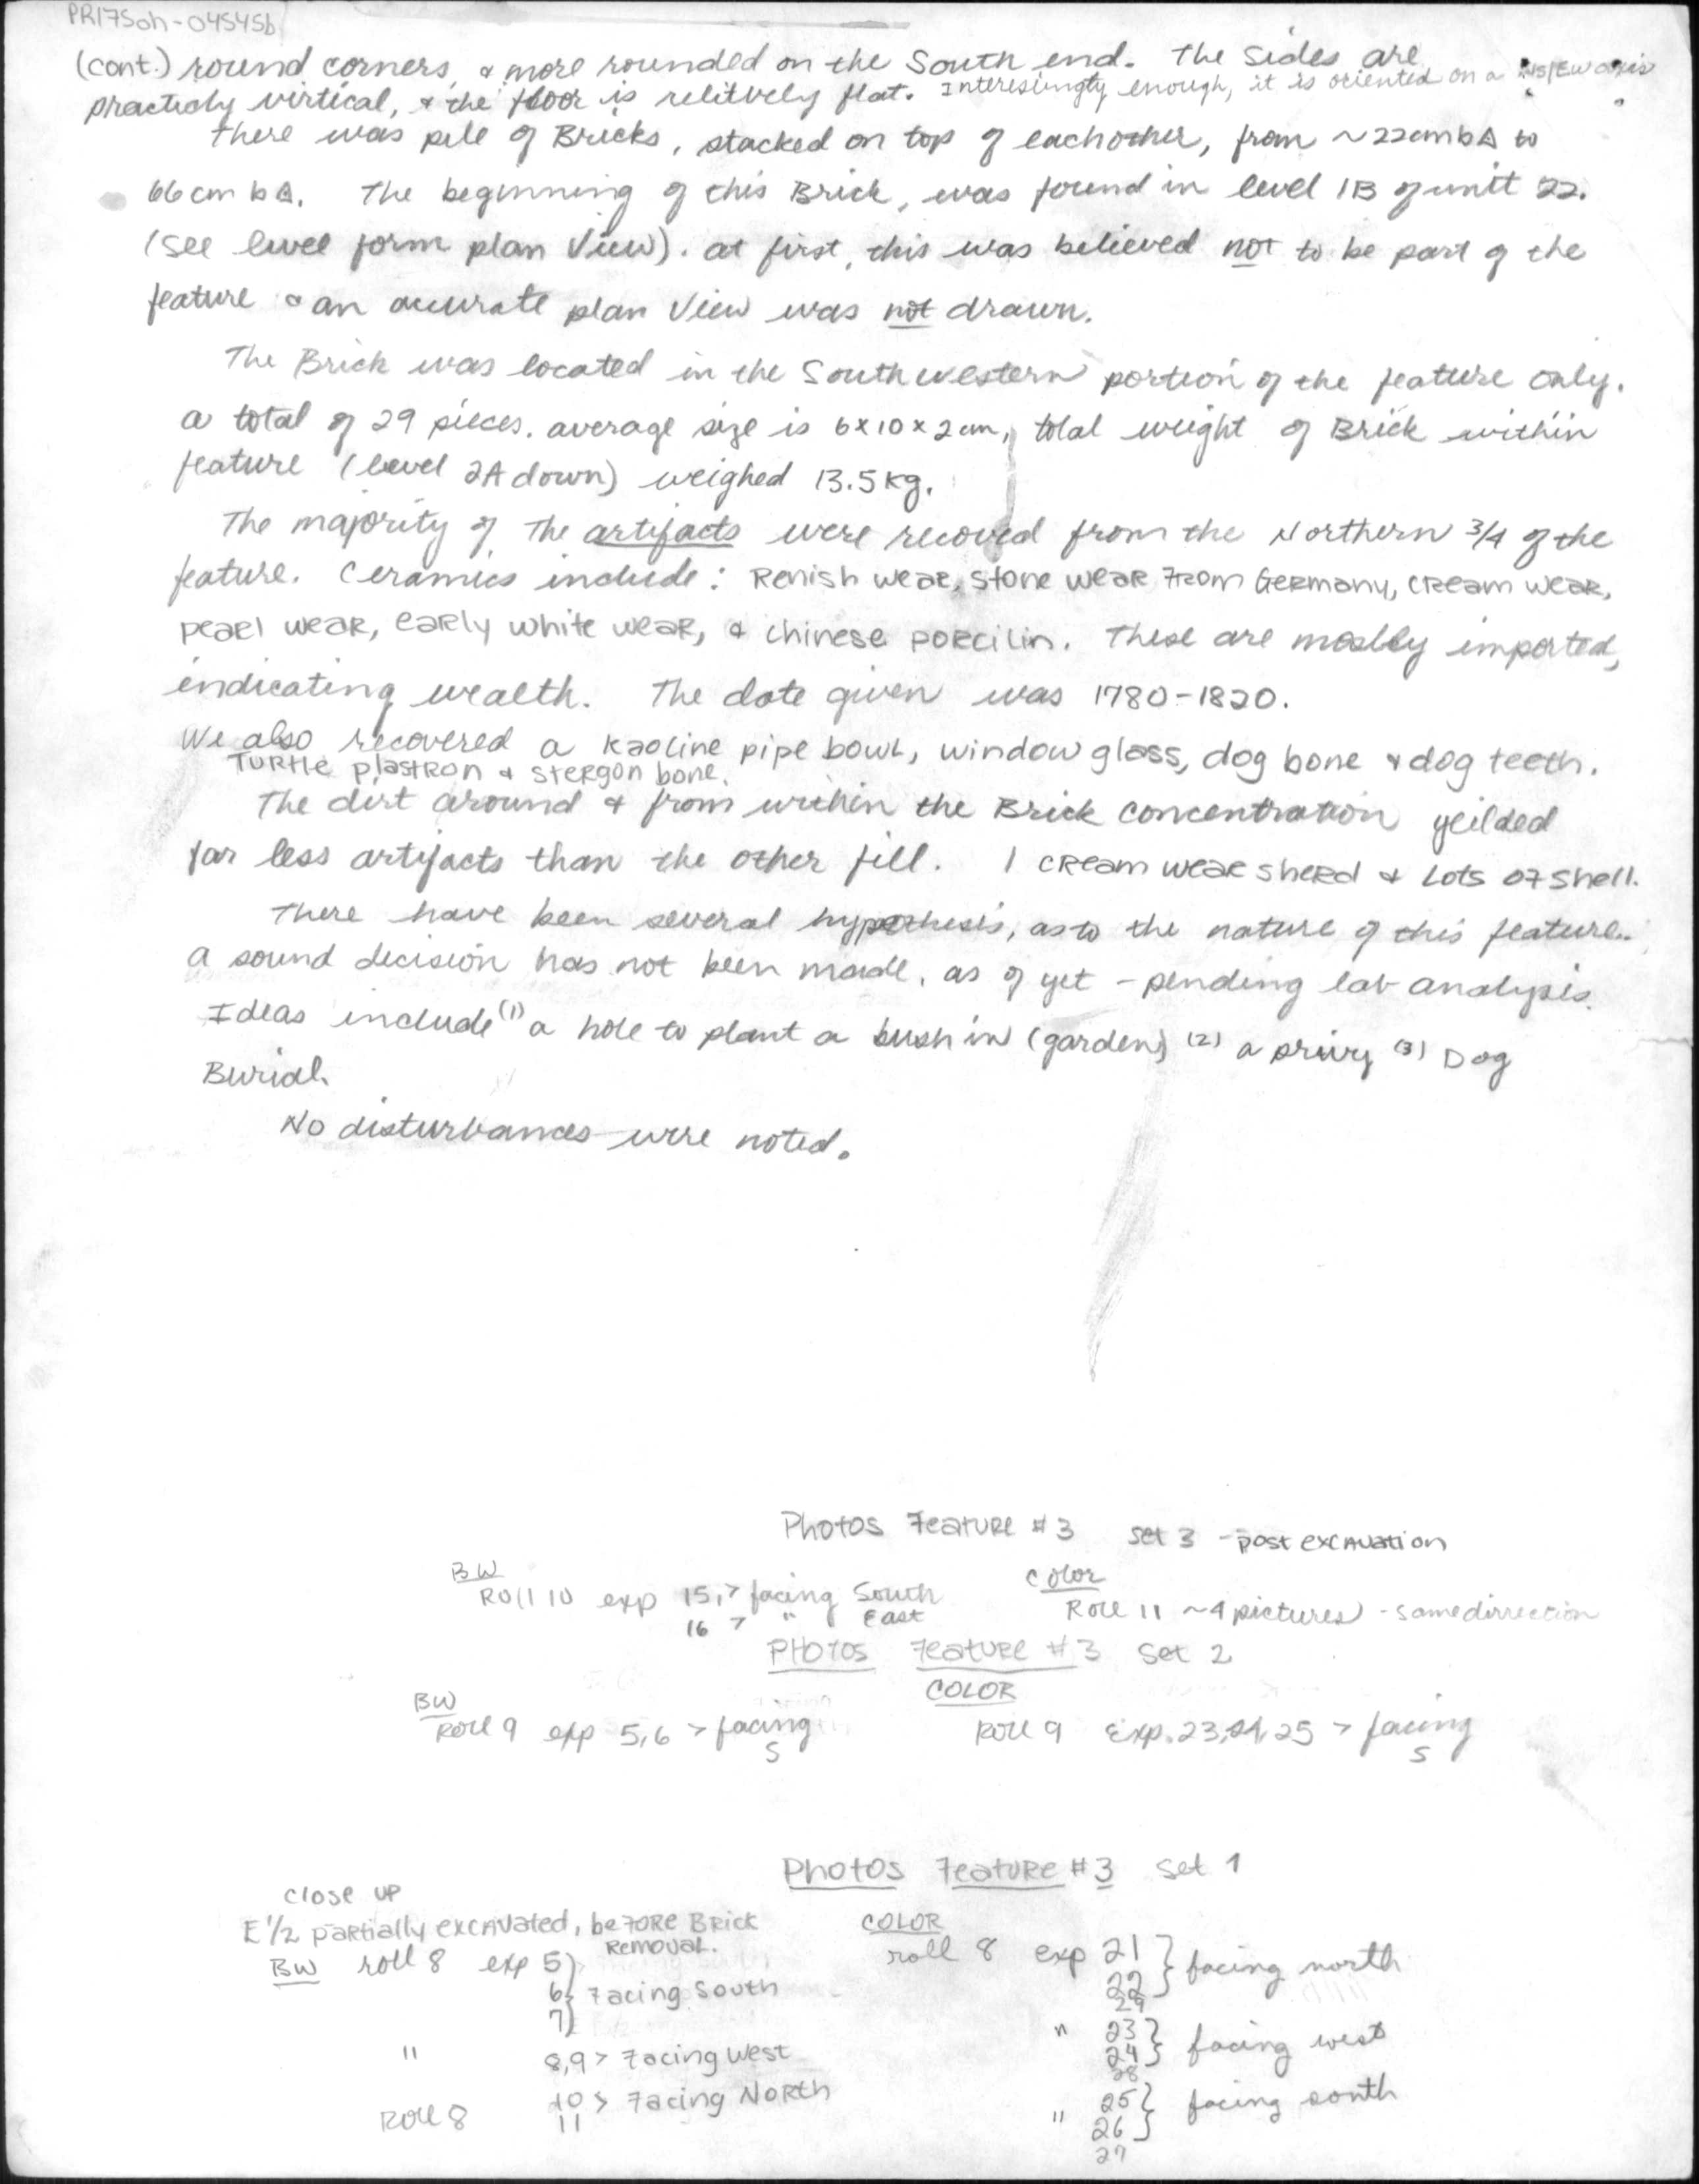 PR175oh-04545b
(cont.) round corners, & more rounded on the South end. The sides are
practicly virtical, & the floor is relitvely flat. Interestingty enough, it is oriented on a NS/EW axis
There was pile of Bricks, stacked on top of eachother, from ~22cmb∆ to
66cm b∆. The beginning of this Brick, was found in level 1B of unit 22.
(see level form plan View). at first, this was believed not to be part of the
feature & an accurate plan View was not drawn.
The Brick was located in the Southwestern portion of the feature only.
a total of 29 pieces. average size is 6x10x2cm, total weight of Brick within
feature (level 2A down) weighed 13.5kg.
The majority of the artifacts were recoved from the Northern 3/4 of the
feature. Ceramics include: Renish wear, stone wear From Germany, cream wear,
pearl wear, early white wear, & chinese porcilin. These are mostly imported,
indicating wealth. The date given was 1780-1820.
We also recovered a kaoline pipe bowl, window glass, dog bone & dog teeth.
Turtle plastron & stergon bone.
The dirt around & from within the Brick concentration yeilded
far less artifacts than the other fill. 1 cream wear sherd & Lots of shell.
There have been several hypothesis, as to the nature of this feature.
a sound decision has not been made, as of yet - pending lab analysis.
Ideas include (1) a hole to plant a bush in (garden) (2) a privy (3) Dog
Burial.
No disturbances were noted.
Photos Feature #3 set 3 - post excavation
BW
Roll 10 exp 15, > facing South
16 > " East
Color
Roll 11 ~4 pictures) - same dirrection
Photos Feature #3 Set 2
BW
Roll 9 exp 5,6 > facing
S
COLOR
Roll 9 Exp. 23,24,25 > facing
S
Photos Feature #3 set 1
close up
E 1/2 partially excavated, before Brick
Removal.
BW roll 8 exp 5
6 } Facing South
7
" 8,9 > Facing West
Roll 8 10 > Facing North
11
COLOR
roll 8 exp 21
22 } facing north
29
" 23
24 } facing west
28
" 25
26 } facing south
27